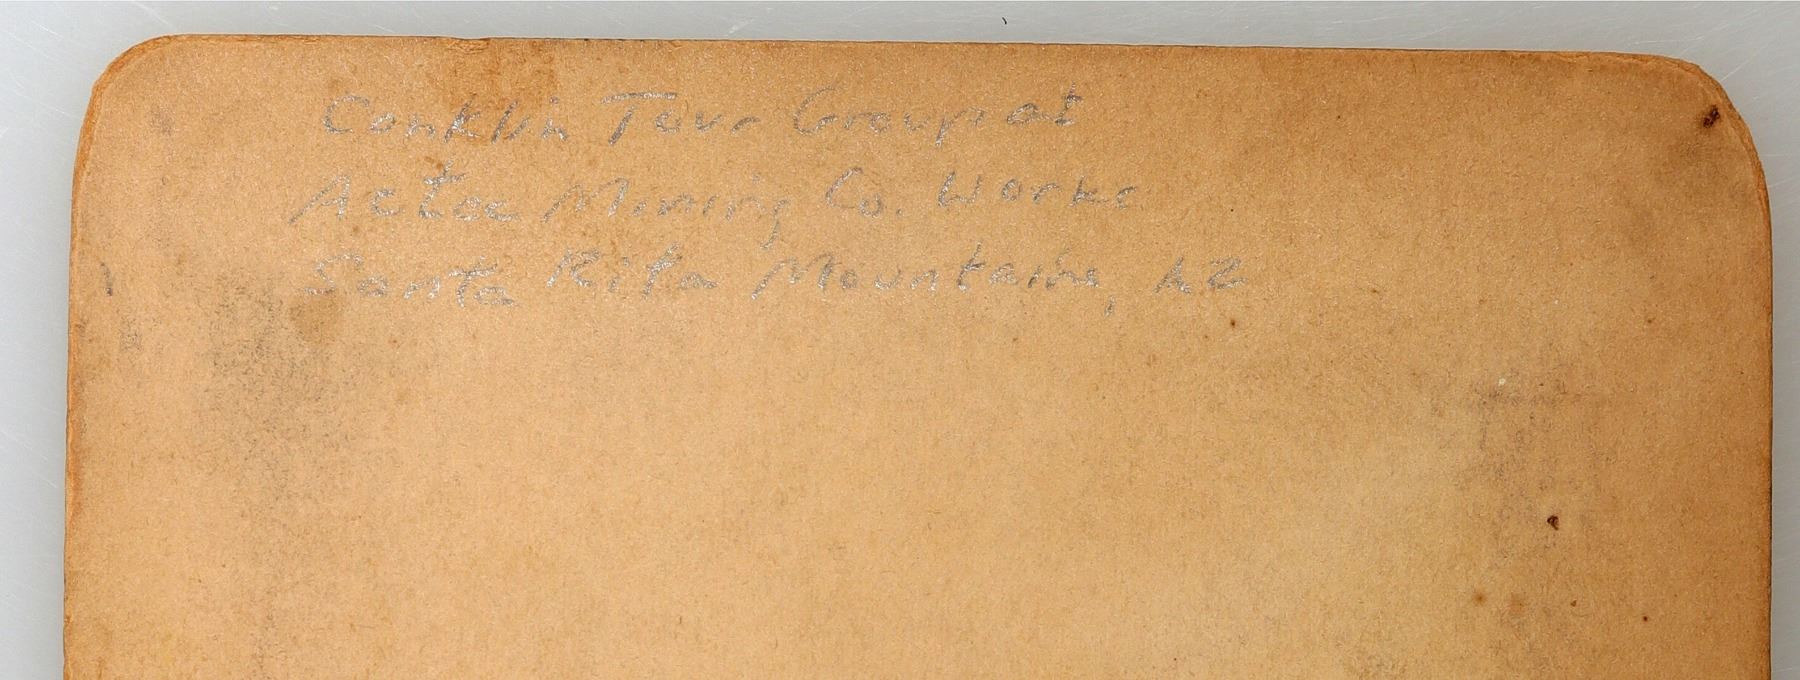 Conklin Tour Group at
Aztec Mining Co. Works
Santa Rita Mountains, AZ